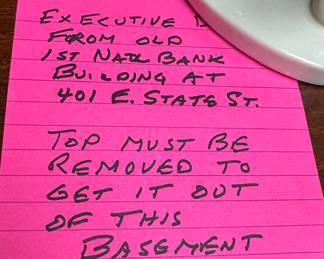 EXECUTIVE
FROM OLD
1ST NATL BANK
BUILDING AT
401 E. STATE ST.
TOP MUST BE
REMOVED TO
GET IT OUT
OF THIS
BASEMENT